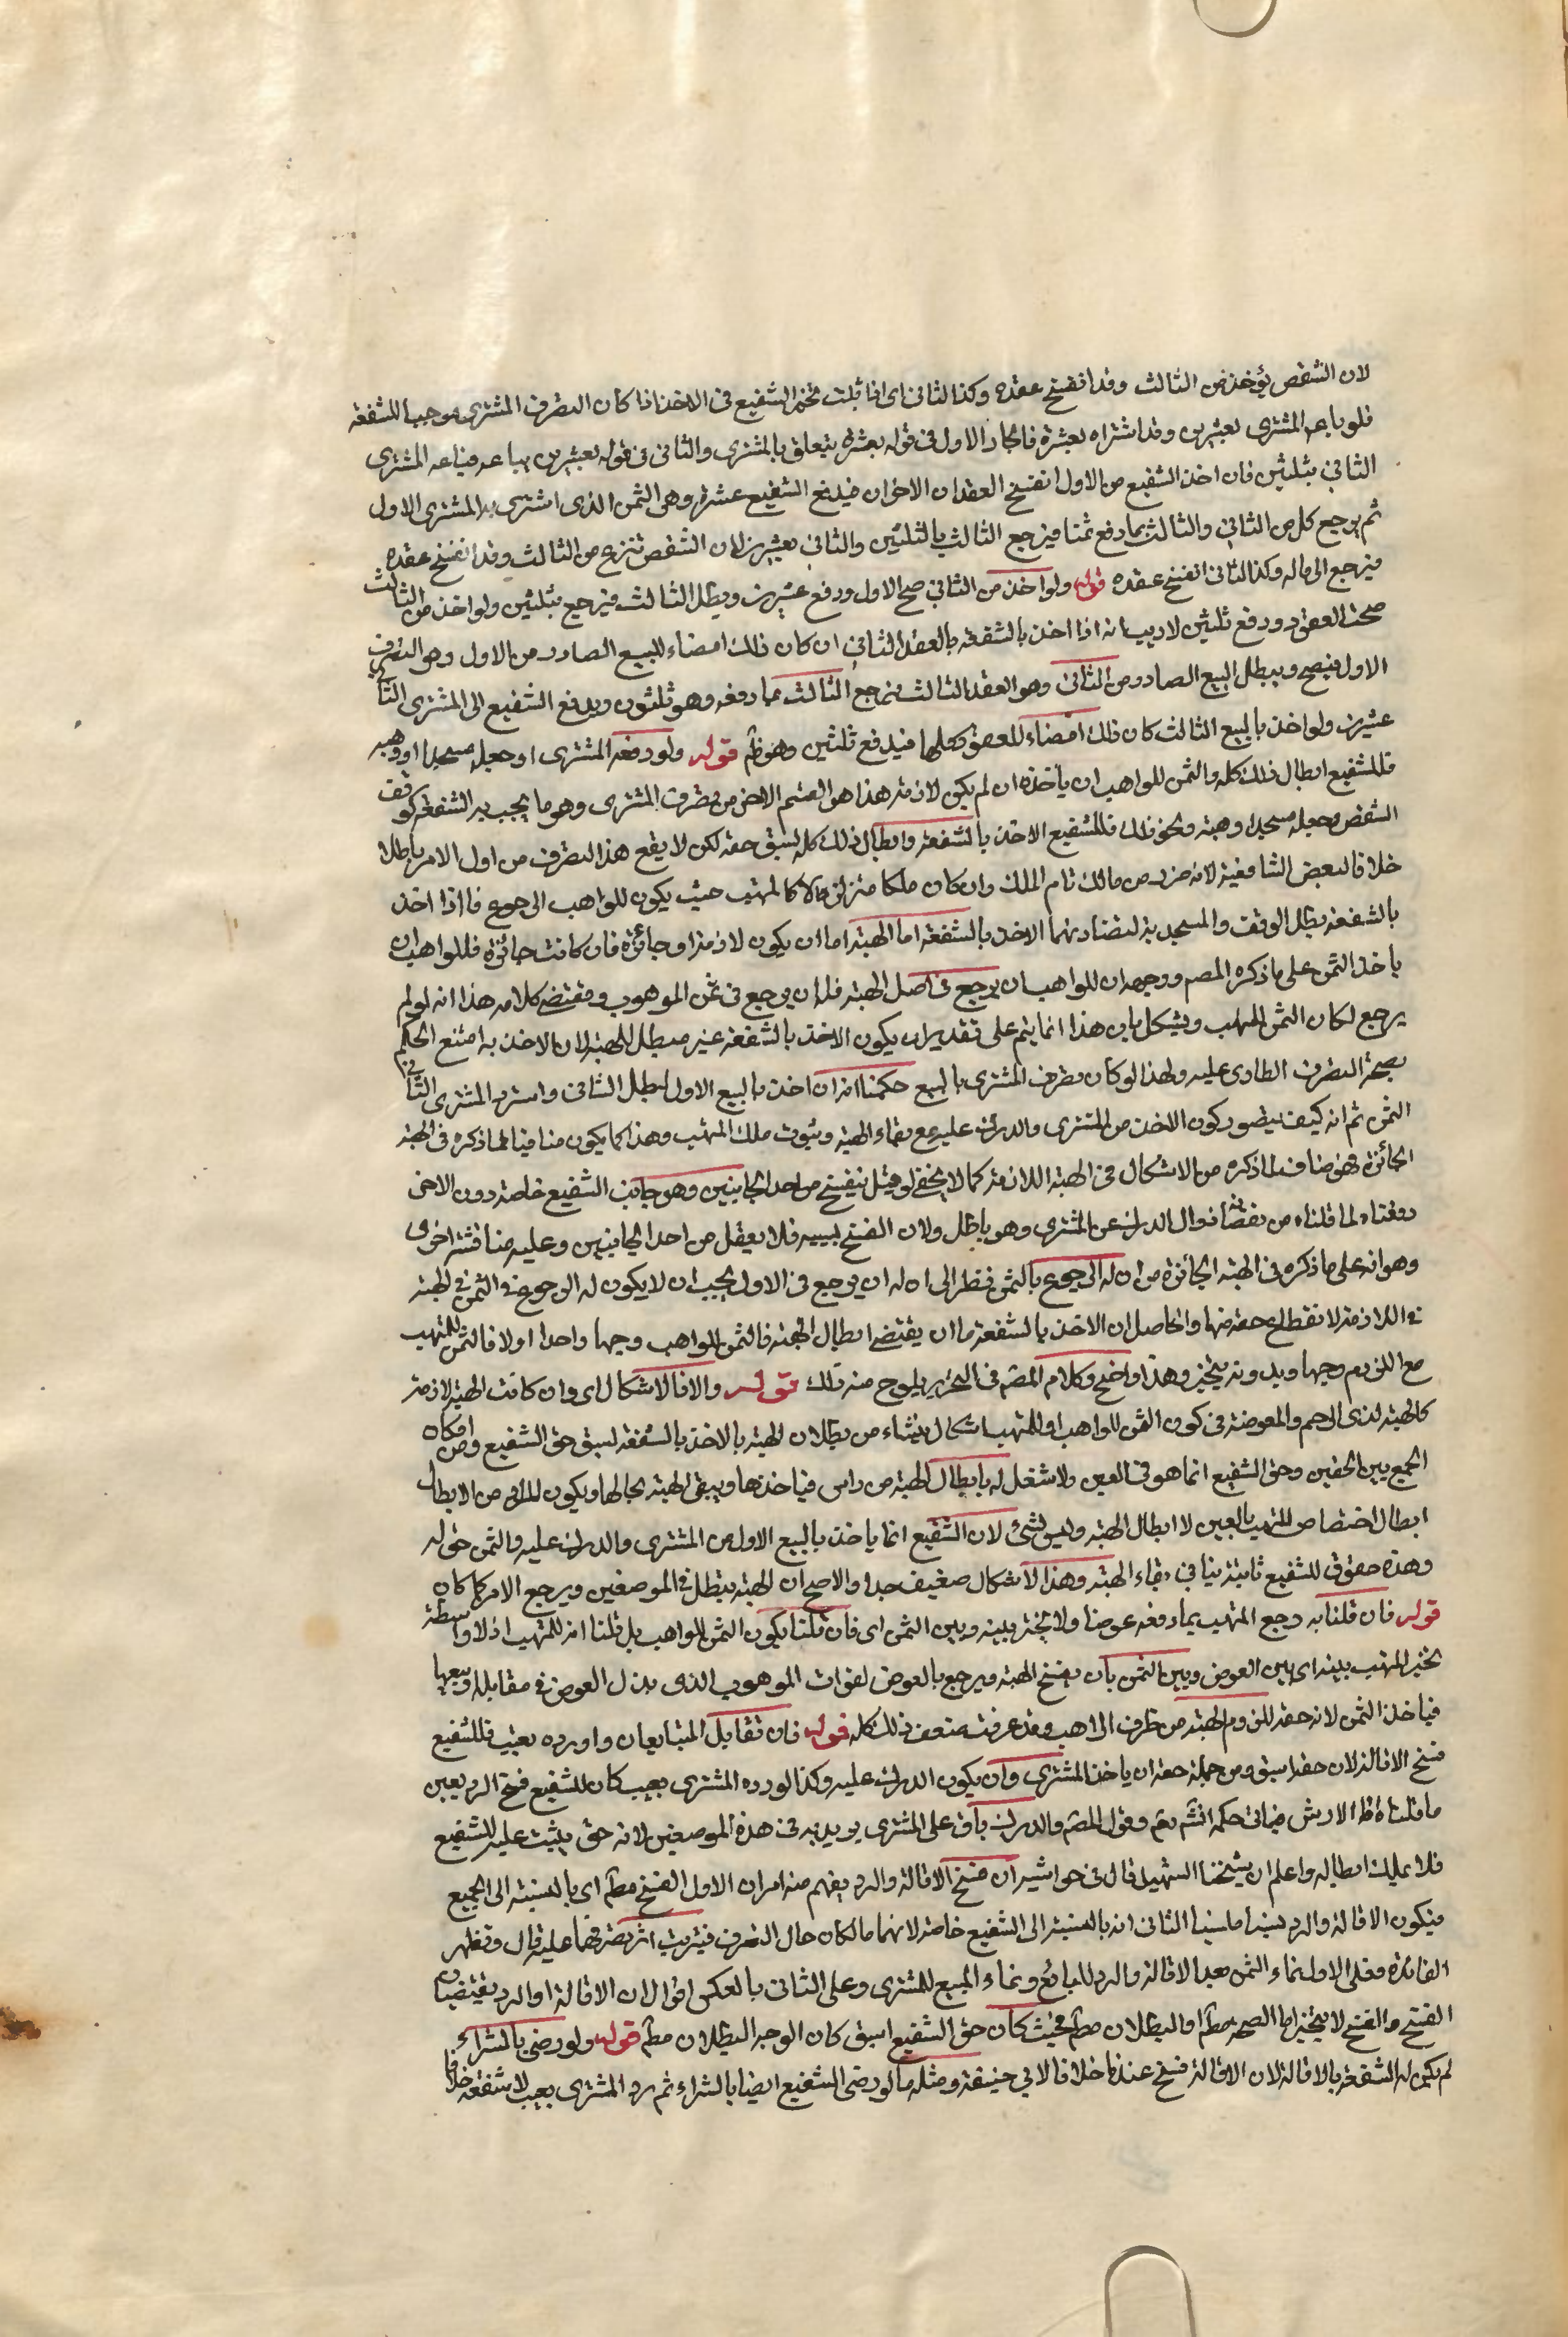 لان الشقص يؤخذ من الثالث وقد انفسخ عقده وكذا الثانى اى اذا قلت تخير الشفيع فى الاخذ اذا كان التصرف المشترى موجبا للشفعة
فلو باعه المشترى بعشرين وقد اشتراه بعشرة فالجار الاول فى قوله بعشرة يتعلق بالمشترى والثانى فى قوله بعشرين بباعه فباعه المشترى
الثانى بثلثين فان اخذ الشفيع من الاول انفسخ العقدان الاخران فيدفع الشفيع عشرة وهى الثمن الذى اشترى به المشترى الاول
ثم يرجع كل من الثانى والثالث بما دفع ثمنا فيرجع الثالث بالثلثين والثانى بعشرين لان الشقص تنزع من الثالث وقد انفسخ عقده
فيرجع الى ماله وكذا الثانى انفسخ عقده قوله ولو اخذ من الثانى صح الاول ودفع عشرين وبطل الثالث فيرجع بثلثين ولو اخذ من الثالث
صحت العقود ودفع ثلثين لا ريب انه اذا اخذ بالشفعة بالعقد الثانى ان كان ذلك امضاء للبيع الصادر من الاول وهو التصرف
الاول فيصح ويبطل البيع الصادر من الثانى وهو العقد الثالث فيرجع الثالث بما دفعه وهو ثلثون ويدفع الشفيع الى المشترى الثانى
عشرين ولو اخذ بالبيع الثالث كان ذلك امضاء للعقود كلها فيدفع ثلثين وهو ظ قوله ولو وقفه المشترى او جعله مسجدا او وهبه
فللشفيع ابطال ذلك كله والثمن للواهب ان ياخذه ان لم يكن لازمة هذا هو القسم الاخر من تصرف المشترى وهو ما يجب به الشفعة كوقف
الشقص وجعله مسجدا وهبته ونحو ذلك فللشفيع الاخذ بالشفعة وابطال ذلك كله لسبق حقه لكن لا يقع هذا التصرف من اول الامر باطلا
خلافا لبعض الشافعية لانه صدر من مالك تام الملك وان كان ملكا متزلزلا كالمتهب حيث يكون للواهب الرجوع فاذا اخذ
بالشفعة بطل الوقف والمسجدية لتضادهما الاخذ بالشفعة اما الهبة اما ان يكون لازمة او جائزة فان كانت جائزة فللواهب ان
ياخذ الثمن على ما ذكره المصم ووجهه ان للواهب ان يرجع فى اصل الهبة فله ان يرجع فى ثمن الموهوب ومقتضى كلامه هذا انه لو لم
يرجع لكان الثمن للمتهب ويشكل بان هذا انما يتم على تقدير ان يكون الاخذ بالشفعة غير مبطل للهبة لان الاخذ به امتنع الحكم
بصحة التصرف الطارى عليه ولهذا لو كان تصرف المشترى بالبيع حكمنا انه ان اخذ بالبيع الاول ابطل الثانى واسترد المشترى الثانى
الثمن ثم انه كيف يتصور كون الاخذ من المشترى والدرك عليه مع بقاء الهبة وثبوت ملك المتهب وهذا كما يكون منافيا لما ذكره فى الهبة
الجائزة فهو مناف لما ذكره من الاشكال فى الهبة اللازمة كما لا يخفى لو قيل تنفسخ من احد الجانبين وهو جانب الشفيع خاصة دون الاخر
دفعناه لما قلناه من زوال الدرك عن المشترى وهو باطل ولان الفسخ لسببه فلا يعقل من احد الجانبين وعليه مناقشة اخرى
وهو انه على ما ذكره فى الهبة الجائزة من ان له الرجوع بالثمن نظرا الى ان له ان يرجع فى الاول يجب ان لا يكون له الرجوع فى الثمن فى الهبة
فى اللازمة لانقطاع حقه منها والحاصل ان الاخذ بالشفعة اما ان يقتضى ابطال الهبة فالثمن للواهب وجها واحدا اولا فالثمن للمتهب
مع اللزوم وجها وبدونه يتخير وهذا واضح وكلام المصم فى التحرير يلوح منه ذلك قوله والا فالاشكال اى وان كانت الهبة لازمة
كالهبة لذى الرحم والمعوضة فى كون الثمن للواهب او للمتهب اشكال ينشاء من بطلان الهبة بالاخذ بالشفعة لسبق حق الشفيع ومن امكان
الجمع بين الحقين وحق الشفيع انما هو فى العين ولا شغل له بابطال الهبة من راس فياخذها ويبقى الهبة بحالها ويكون المراد من الابطال
ابطال اختصاص المتهب بالعين لا ابطال الهبة وليس بشئ لان الشفيع انما ياخذ بالبيع الاول من المشترى والدرك عليه والثمن حق له
وهذه حقوق للشفيع ثابتة ينافى بقاء الهبة وهذا الاشكال ضعيف جدا والاصح ان الهبة يبطل فى الموضعين ويرجع الامر كما كان
قوله فان قلنا به رجع المتهب بما دفعه عوضا ولا تخير بينه وبين الثمن اى فان قلنا بكون الثمن للواهب بل قلنا انه للمتهب اذ لا واسطة
تخير المتهب بينه اى بين العوض وبين الثمن بان يفسخ الهبة ويرجع بالعوض لفوات الموهوب الذى بذل العوض فى مقابله وبيعها
فياخذ الثمن لانه حقه للزوم الهبة من طرف الواهب وقد عرفت ضعف ذلك كله قوله فان تقايل المتبايعان او رده بعيب فللشفيع
فسخ الاقالة لان حقه اسبق ومن جملة حقه ان ياخذ من المشترى وان يكون الدرك عليه وكذا لو رده المشترى بعيب كان للشفيع فسخ الرد بعين
ما قلناه اما الارش فياتى حكمه انشم تعم وقول المصم والدرك باق على المشترى يريد به فى هذه الموضعين لانه حق يثبت عليه للشفيع
فلا يملك ابطاله واعلم ان شيخنا الشهيد قال فى حواشيه ان فسخ الاقالة والرد يفهم منه امران الاول الفسخ مطم اى بالنسبة الى الجميع
فيكون الاقالة والرد نسيا منسيا الثانى انه بالنسبة الى الشفيع خاصة لانهما مالكان حال التصرف فيترتب اثر تصرفهما عليه قال وتظهر
الفائدة فعلى الاول نماء الثمن بعد الاقالة والرد للبائع ونماء المبيع للمشترى وعلى الثانى بالعكس اقول ان الاقالة او الرد يقتضيان
الفسخ والفسخ لا يتخير اما الصحة مطم او البطلان مطم فحيث كان حق الشفيع اسبق كان الوجه البطلان مطم قوله ولو رضى بالشراء
لم يكن له الشفعة بالاقالة لان الاقالة فسخ عندنا خلافا لابى حنيفة ومثله ما لو رضى الشفيع ايضا بالشراء ثم رد المشترى بعيب لا شفعة خلافا